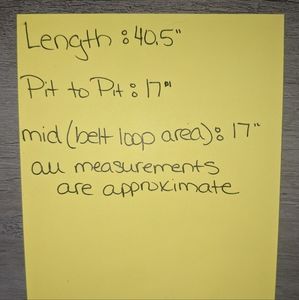 Length: 40.5"
Pit to Pit: 17"
mid (belt loop area): 17"
all measurements
are approximate